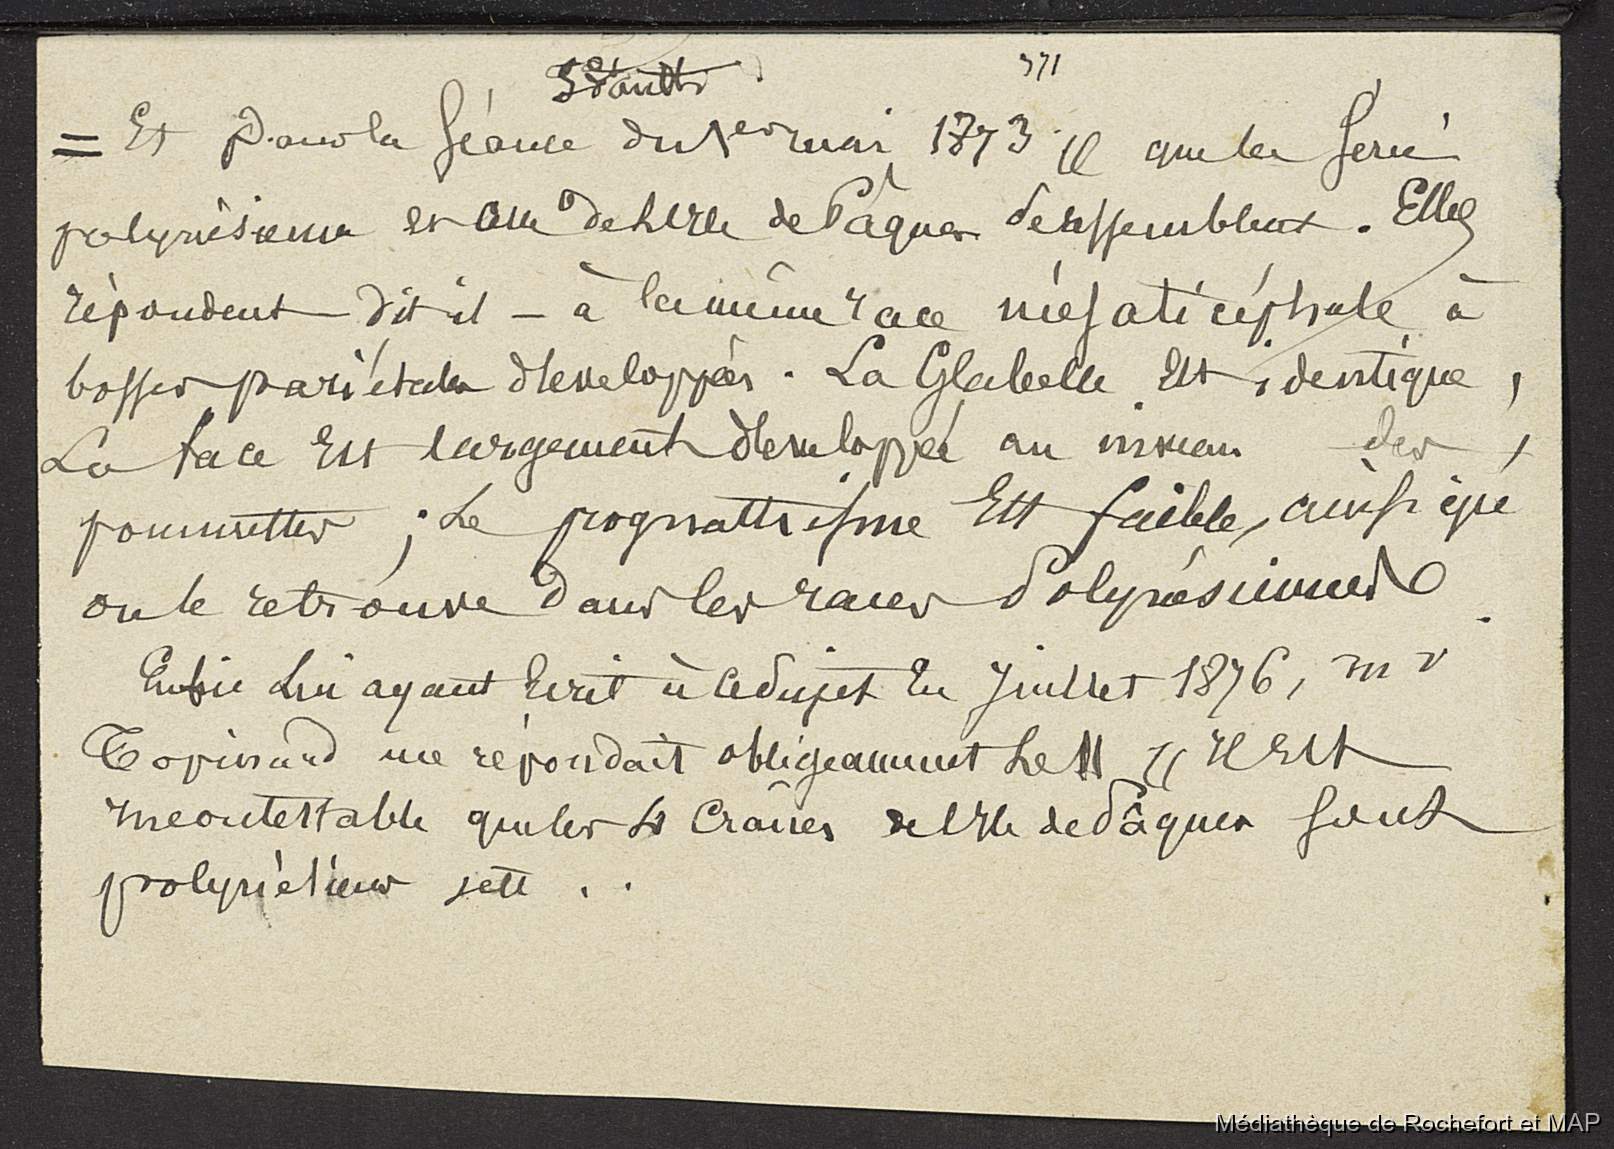 371
= Et Dans la séance du 1er mai 1873 que la série
polynésienne et celle de l'Ile de Pâques se ressemblent. Elles
répondent dit il - à la même race mésaticéphale à
bosses pariétales développées. La Glabelle est identique,
La face est largement développée au niveau des
pommettes ; Le prognathisme Est faible, ainsi que
on le retrouve dans les races Polynésiennes.
Enfin Lui ayant Ecrit à ce Sujet En Juillet 1876, Mr
Topinard me répondait obligeamment Le 11 " Il Est
incontestable que les 4 Crânes de l'Ile de Pâques sont
polynésiens
Médiathèque de Rochefort et MAP